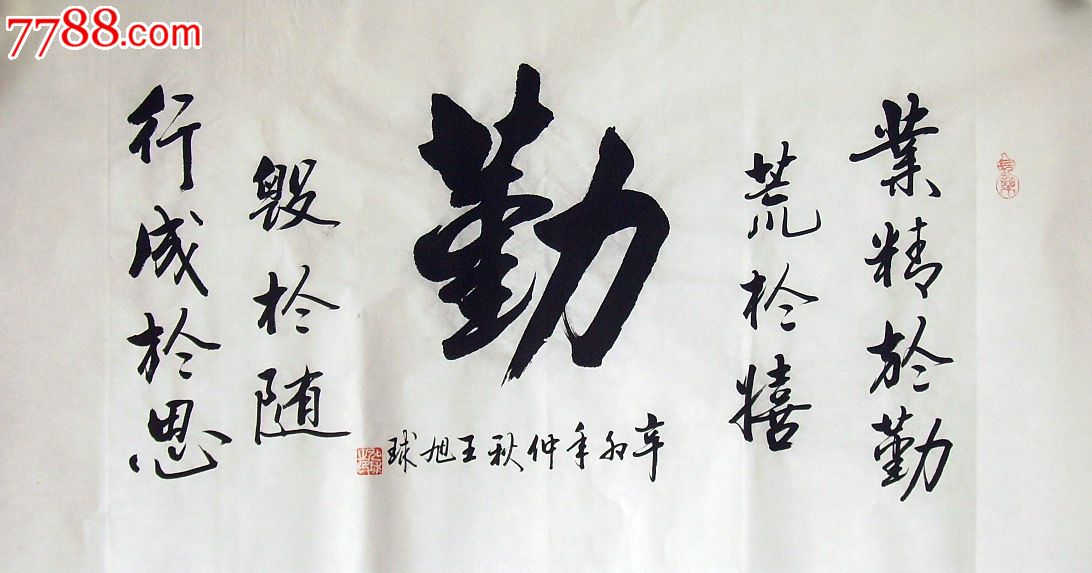 7788.com
業精於勤
荒於嬉
勤
行成於思
毁於随
辛卯年仲秋王旭球